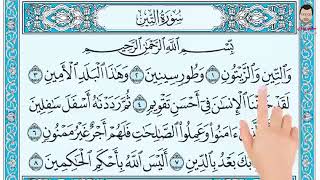 سُورَةُ التِّينِ
بِسْمِ اللَّهِ الرَّحْمَٰنِ الرَّحِيمِ
وَالتِّينِ وَالزَّيْتُونِ ١ وَطُورِ سِينِينَ ٢ وَهَٰذَا الْبَلَدِ الْأَمِينِ ٣
لَقَدْ خَلَقْنَا الْإِنسَانَ فِي أَحْسَنِ تَقْوِيمٍ ٤ ثُمَّ رَدَدْنَاهُ أَسْفَلَ سَافِلِينَ
آمَنُوا وَعَمِلُوا الصَّالِحَاتِ فَلَهُمْ أَجْرٌ غَيْرُ مَمْنُونٍ ٦
بَعْدُ بِالدِّينِ ٧ أَلَيْسَ اللَّهُ بِأَحْكَمِ الْحَاكِمِينَ ٨